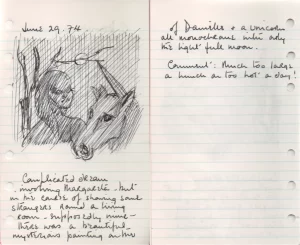 June 29. 74.
Complicated dream
involving Margarete - but
in the course of showing some
strangers round a living
room - supposedly mine -
there was a beautiful -
mysterious painting on the
of Danielle & a unicorn
all monochrome with only
the light full moon.
Comment: Much too large
a lunch on too hot a day!